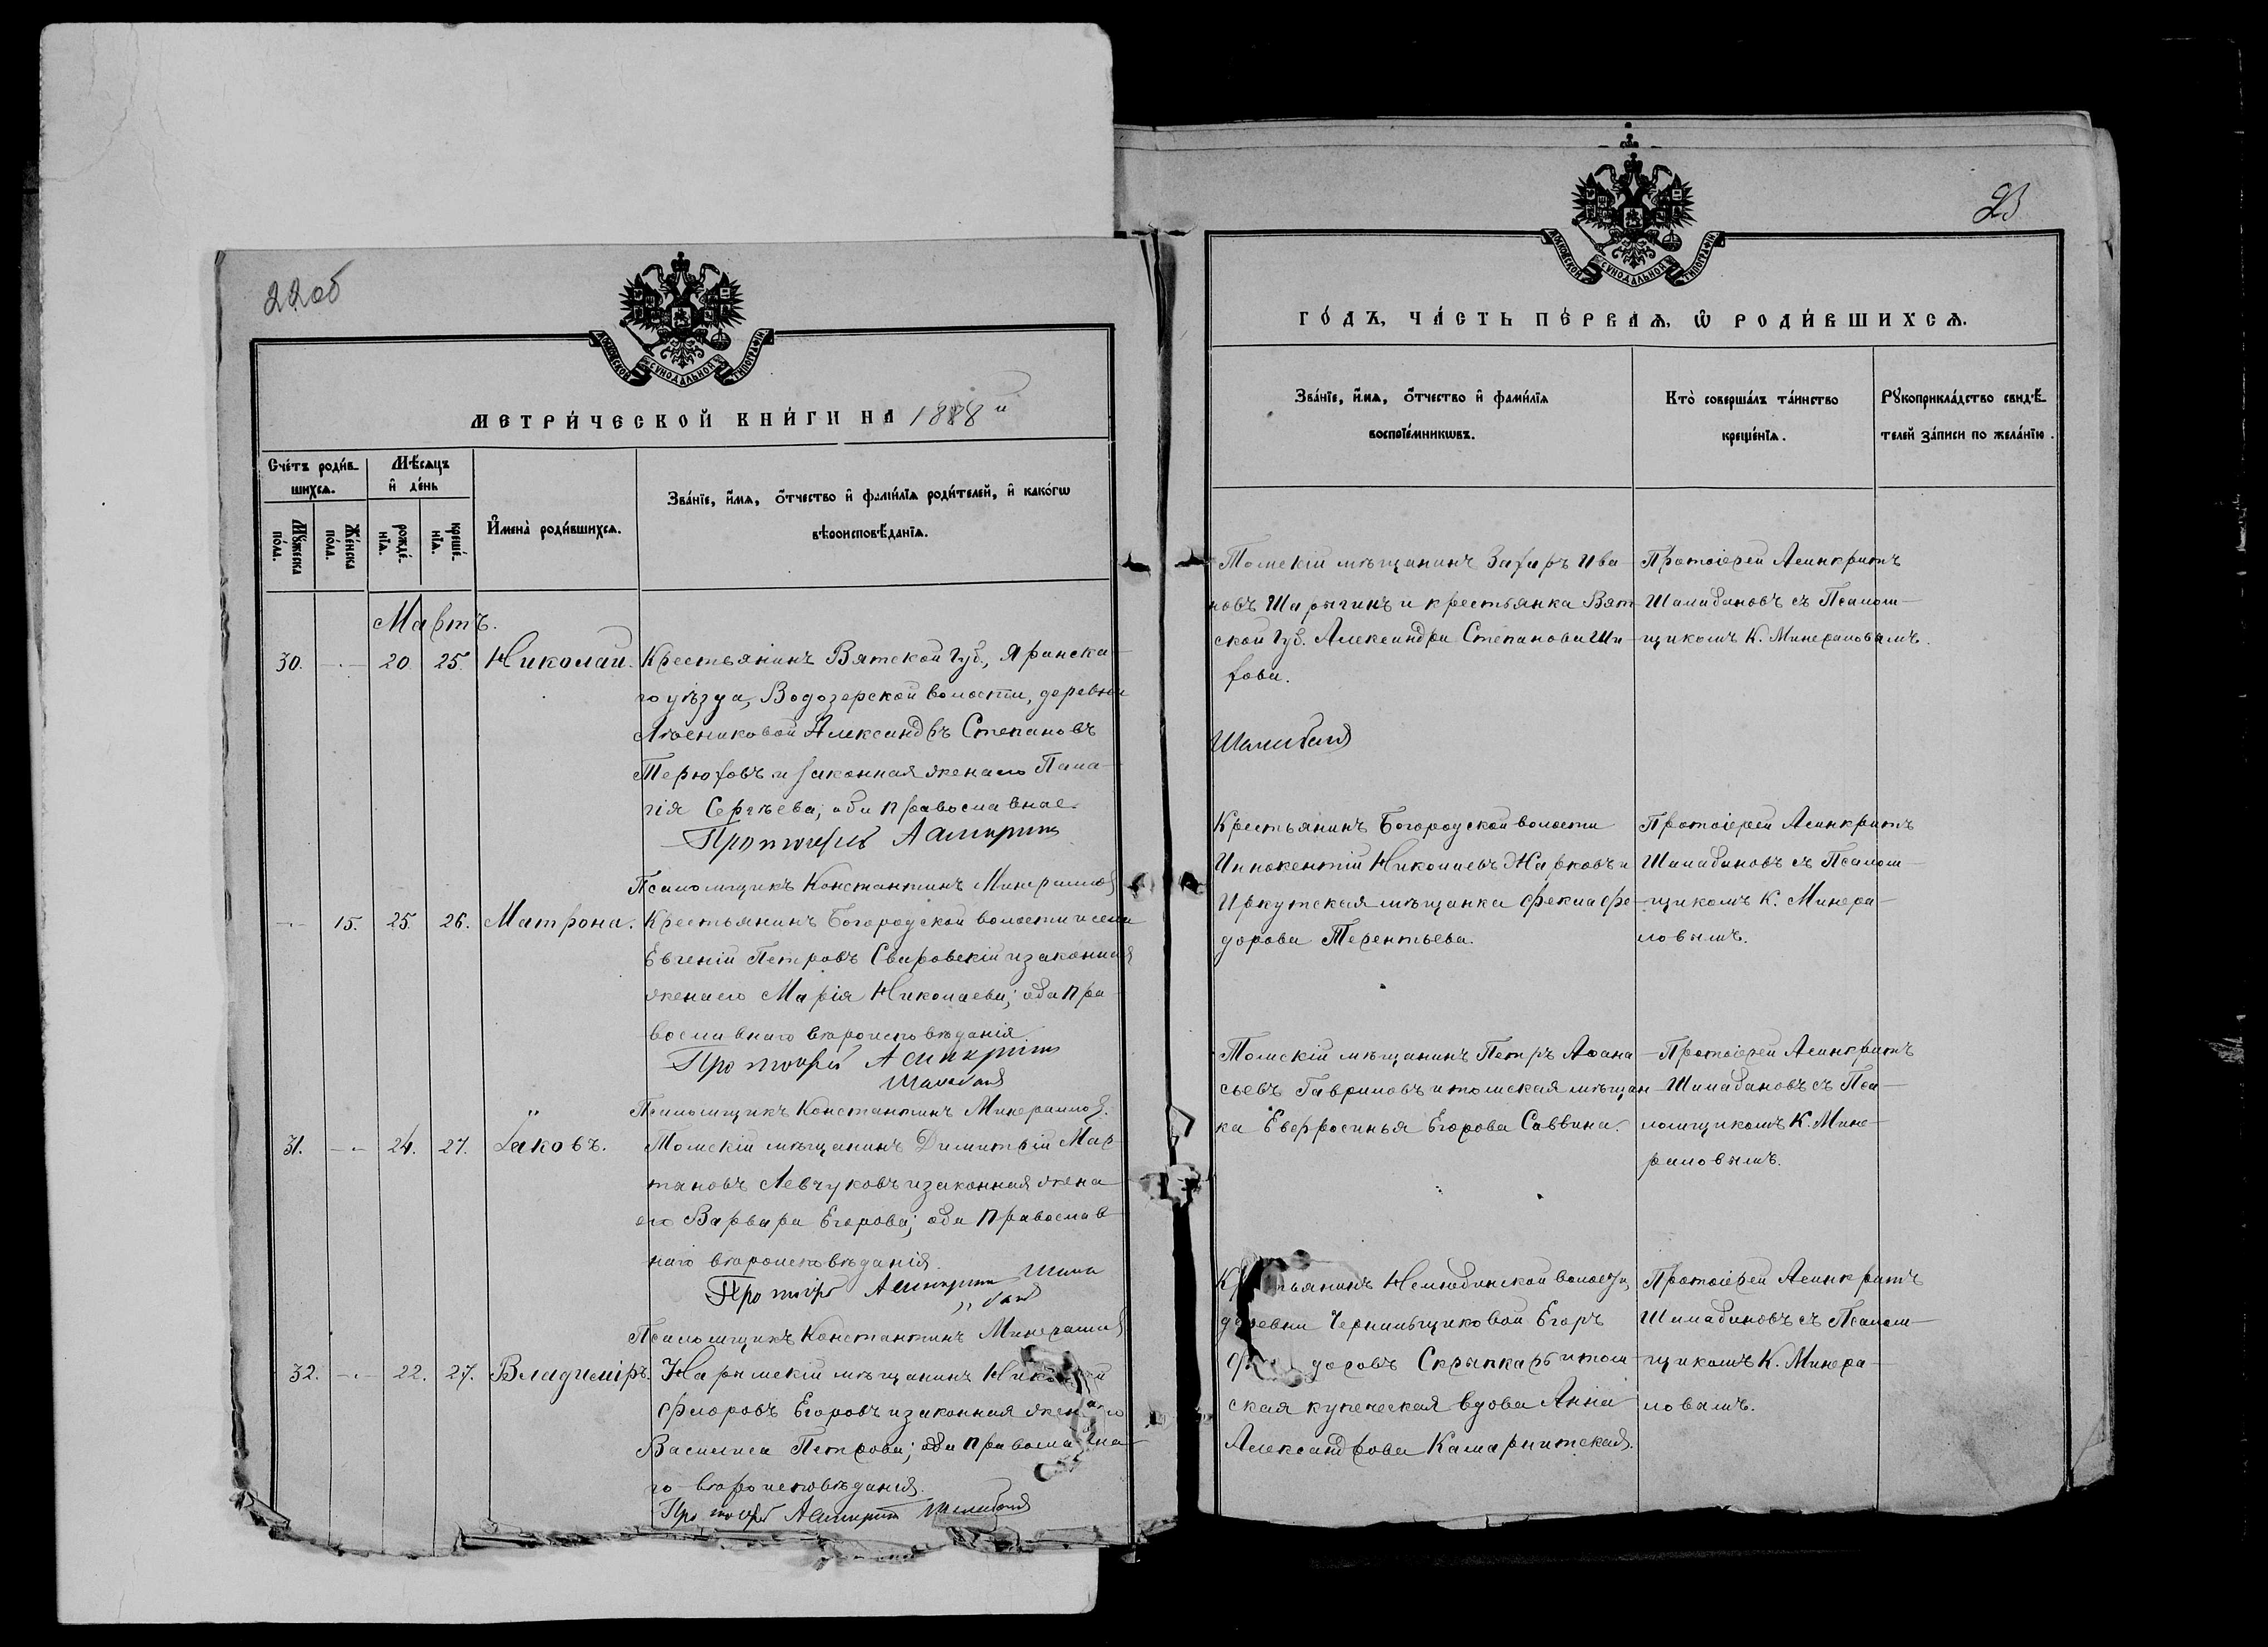 22об
МОСКОВСКОЙ СУНОДАЛЬНОЙ ТИПОГРАФІИ
МЕТРИ́ЧЕСКОЙ КНИ́ГИ НА 1888 й
Счетъ роди́в-
шихсѧ.
Мѣ́сѧцъ
и де́нь
Мꙋ́жеска
по́ла.
Же́нска
по́ла.
рожде́-
нїѧ.
креще́-
нїѧ.
И҆мена̀ роди́вшихсѧ.
Зва́нїе, и҆́мѧ, о҆́тчество и҆ фами́лїѧ роди́телей, и҆ како́гѡ
вѣроисповѣ́данїѧ.
Мартъ.
30. -.- 20 25. Николай. Крестьянинъ Вятской Губ., Яранска-
го уѣзда, Водозерской волости, деревни
Александръ Степановъ
Терюховъ и законная жена его Пела-
гія Сергѣева; оба православнаго
Протоіерей Асинкритъ
Псаломщикъ Константинъ Минераловъ
-.- 15. 25. 26. Матрона. Крестьянинъ Богородской волости и села
Евгеній Петровъ Сваровскій и законная
жена его Марія Николаева; оба пра-
вославнаго вѣроисповѣданія
Протоіерей Асинкритъ
Шалабановъ
Псаломщикъ Константинъ Минераловъ.
31. -.- 24. 27. Іаковъ. Томскій мѣщанинъ Димитрій Мар-
тяновъ Левчуковъ и законная жена
его Варвара Егорова; оба православ-
наго вѣроисповѣданія.
Протоіерей Асинкритъ Шала
бановъ
Псаломщикъ Константинъ Минераловъ
32. -.- 22. 27. Владиміръ. Нарымскій мѣщанинъ Николай
Флоровъ Егоровъ и законная жена его
Василиса Петрова; оба православна-
го вѣроисповѣданія.
Протоіерей Асинкритъ Шалабановъ
23
МОСКОВСКОЙ СУНОДАЛЬНОЙ ТИПОГРАФІИ
ГО́ДЪ, ЧА́СТЬ ПЕ́РВАѦ, Ѡ҆ РОДИ́ВШИХСѦ.
Зва́нїе, и҆́мѧ, о҆́тчество и҆ фами́лїѧ
воспрїе́мникѡвъ.
Кто̀ соверша́лъ та́инство
креще́нїѧ.
Рꙋкоприкла́дство свидѣ́-
телей за́писи по жела́нїю.
Томскій мѣщанинъ Захаръ Ива-
новъ Шарыгинъ и крестьянка Вят-
ской Губ. Александра Степанова Ши-
рова.
Шалабановъ
Протоіерей Асинкритъ
Шалабановъ съ Псалом-
щикомъ К. Минераловымъ.
Крестьянинъ Богородской волости
Иннокентій Николаевъ Жарковъ и
Иркутская мѣщанка Фекла Фе-
дорова Терентьева.
Протоіерей Асинкритъ
Шалабановъ съ Псалом-
щикомъ К. Минера-
ловымъ.
Томскій мѣщанинъ Петръ Аѳана-
сьевъ Гавриловъ и томская мѣщан-
ка Евфросинья Егорова Саввина.
Протоіерей Асинкритъ
Шалабановъ съ Пса-
ломщикомъ К. Мине-
раловымъ.
Крестьянинъ Нелюбинской волости,
деревни Чернильщиковой Егоръ
Федоровъ Скрыпкарь и том-
ская купеческая вдова Анна
Александрова Камарнитская.
Протоіерей Асинкритъ
Шалабановъ съ Псалом-
щикомъ К. Минера-
ловымъ.